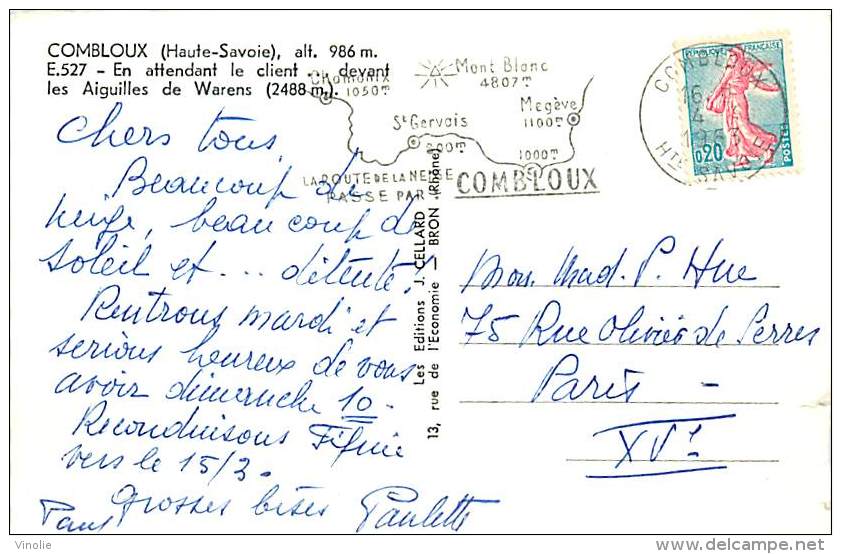 COMBLOUX (Haute-Savoie), alt. 986 m.
E.527 - En attendant le client ... devant
les Aiguilles de Warens (2488 m.).
Chamonix
1050m
Mont Blanc
4807m
Megève
1100m
St Gervais
800m
1000m
LA ROUTE DE LA NEIGE
PASSE PAR
COMBLOUX
REPUBLIQUE FRANÇAISE
0,20
POSTES
COMBLOUX
16 H
4
1963
HTE SAVOIE
Chers tous,
Beaucoup de
neige, beaucoup de
soleil et ... détente!
Rentrons mardi et
serions heureux de vous
avoir dimanche 10.
Reconduisons
vers le 15/3.
Grosses bises
Paul
Paulette
Les Editions J. CELLARD
13, rue de l'Economie - BRON (Rhône)
Mon. Mad. P. Hue
75 Rue Olivier de Serres
Paris -
XVe
http://vinolie.delcampe.net